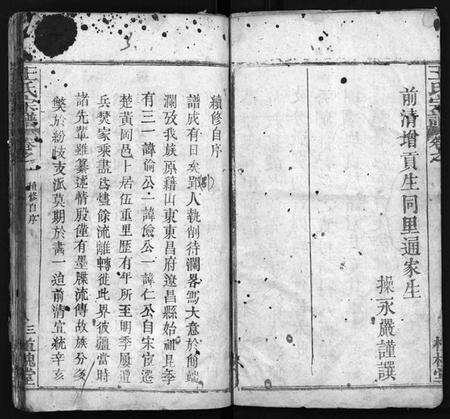 王氏宗譜
前清增貢生同里通家生
操永嚴謹譔
續修自序
譜成有日矣 人執削待瀾畧寫大意於簡端
瀾攷我族原籍山東東昌府遼昌縣始祖兄季
有三一諱 公一諱儉公一諱仁公自宋宦遷
楚黃岡邑上居伍重里歷有年所至明季屢遭
兵燹家乘盡爲燼餘流離轉徙此界彼疆當時
諸先輩雖纂述情殷僅有墨牒流傳故族分多
繁於紛岐支派莫期於畫一迨前清宣統辛亥
王氏宗譜
卷之一
續修自序
三槐堂